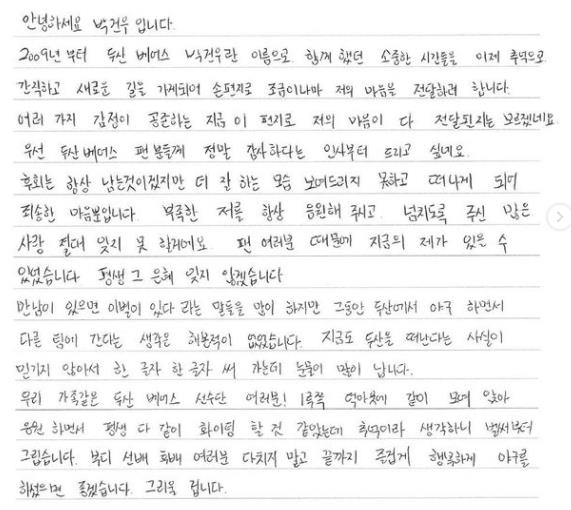 안녕하세요 박건우 입니다.
2009년 부터 두산 베어스 박건우란 이름으로 함께 했던 소중한 시간들을 이제 추억으로
간직하고 새로운 길을 가게되어 손편지로 조금이나마 저의 마음을 전달하려 합니다.
여러 가지 감정이 공존하는 지금 이 편지로 저의 마음이 다 전달된지는 모르겠네요.
우선 두산베어스 팬 분들께 정말 감사하다는 인사부터 드리고 싶네요.
후회는 항상 남는것이겠지만 더 잘 하는 모습 보여드리지 못하고 떠나게 되어
죄송한 마음뿐입니다. 부족한 저를 항상 응원해 주시고. 넘치도록 주신 많은
사랑 절대 잊지 못 할게에요. 팬 여러분 때문에 지금의 제가 있을 수
있었습니다 평생 그 은혜 잊지 않겠습니다
만남이 있으면 이별이 있다 라는 말들을 많이 하지만 그동안 두산에서 야구 하면서
다른 팀에 간다는 생각은 해본적이 없었습니다. 지금도 두산을 떠난다는 사실이
믿기지 않아서 한 글자 한 글자 써 가는데 눈물이 많이 납니다.
우리 가족같은 두산 베어스 선수단 여러분! 1루쪽 덕아웃에 같이 모여 앉아
응원 하면서 평생 다 같이 화이팅 할 것 같았는데 추억이라 생각하니 벌써부터
그립습니다. 부디 선배 후배 여러분 다치지 말고 끝까지 즐겁게 행복하게 야구를
하셨으면 좋겠습니다. 그리울 겁니다.